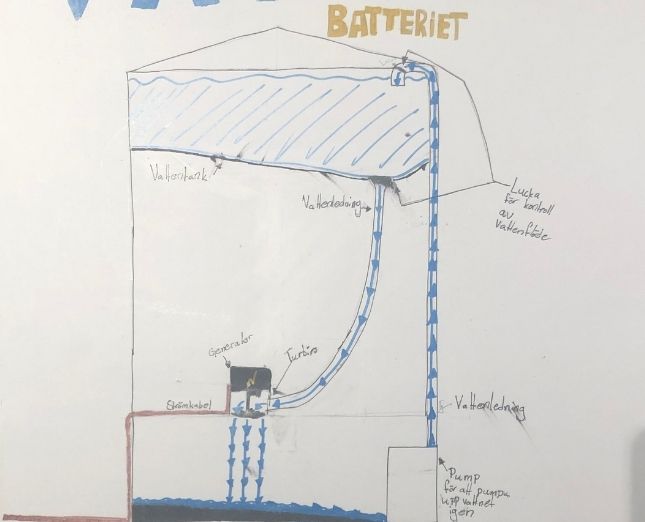 BATTERIET
Vattentank
Vattenledning
Lucka
för kontroll
av
vattenflöde
Generator
Turbin
Strömkabel
Vattenledning
Pump
för att pumpa
upp vattnet
igen